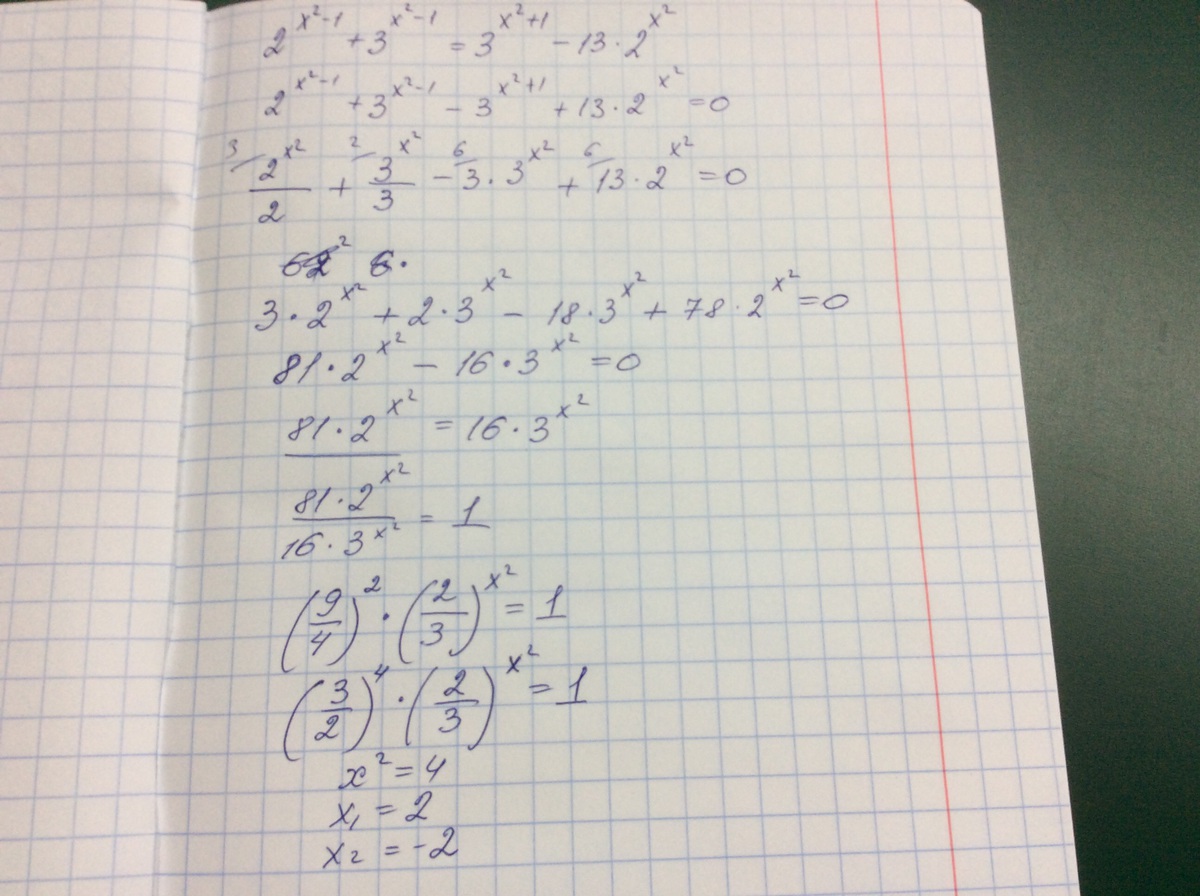 2^{x²-1} + 3^{x²-1} = 3^{x²+1} - 13 · 2^{x²}
2^{x²-1} + 3^{x²-1} - 3^{x²+1} + 13 · 2^{x²} = 0
3/ 2^{x²}/2 + 2/ 3^{x²}/3 - 6/ 3 · 3^{x²} + 6/ 13 · 2^{x²} = 0
3 · 2^{x²} + 2 · 3^{x²} - 18 · 3^{x²} + 78 · 2^{x²} = 0
81 · 2^{x²} - 16 · 3^{x²} = 0
81 · 2^{x²} = 16 · 3^{x²}
81 · 2^{x²} / 16 · 3^{x²} = 1
(9/4)² · (2/3)^{x²} = 1
(3/2)⁴ · (2/3)^{x²} = 1
x² = 4
x₁ = 2
x₂ = -2